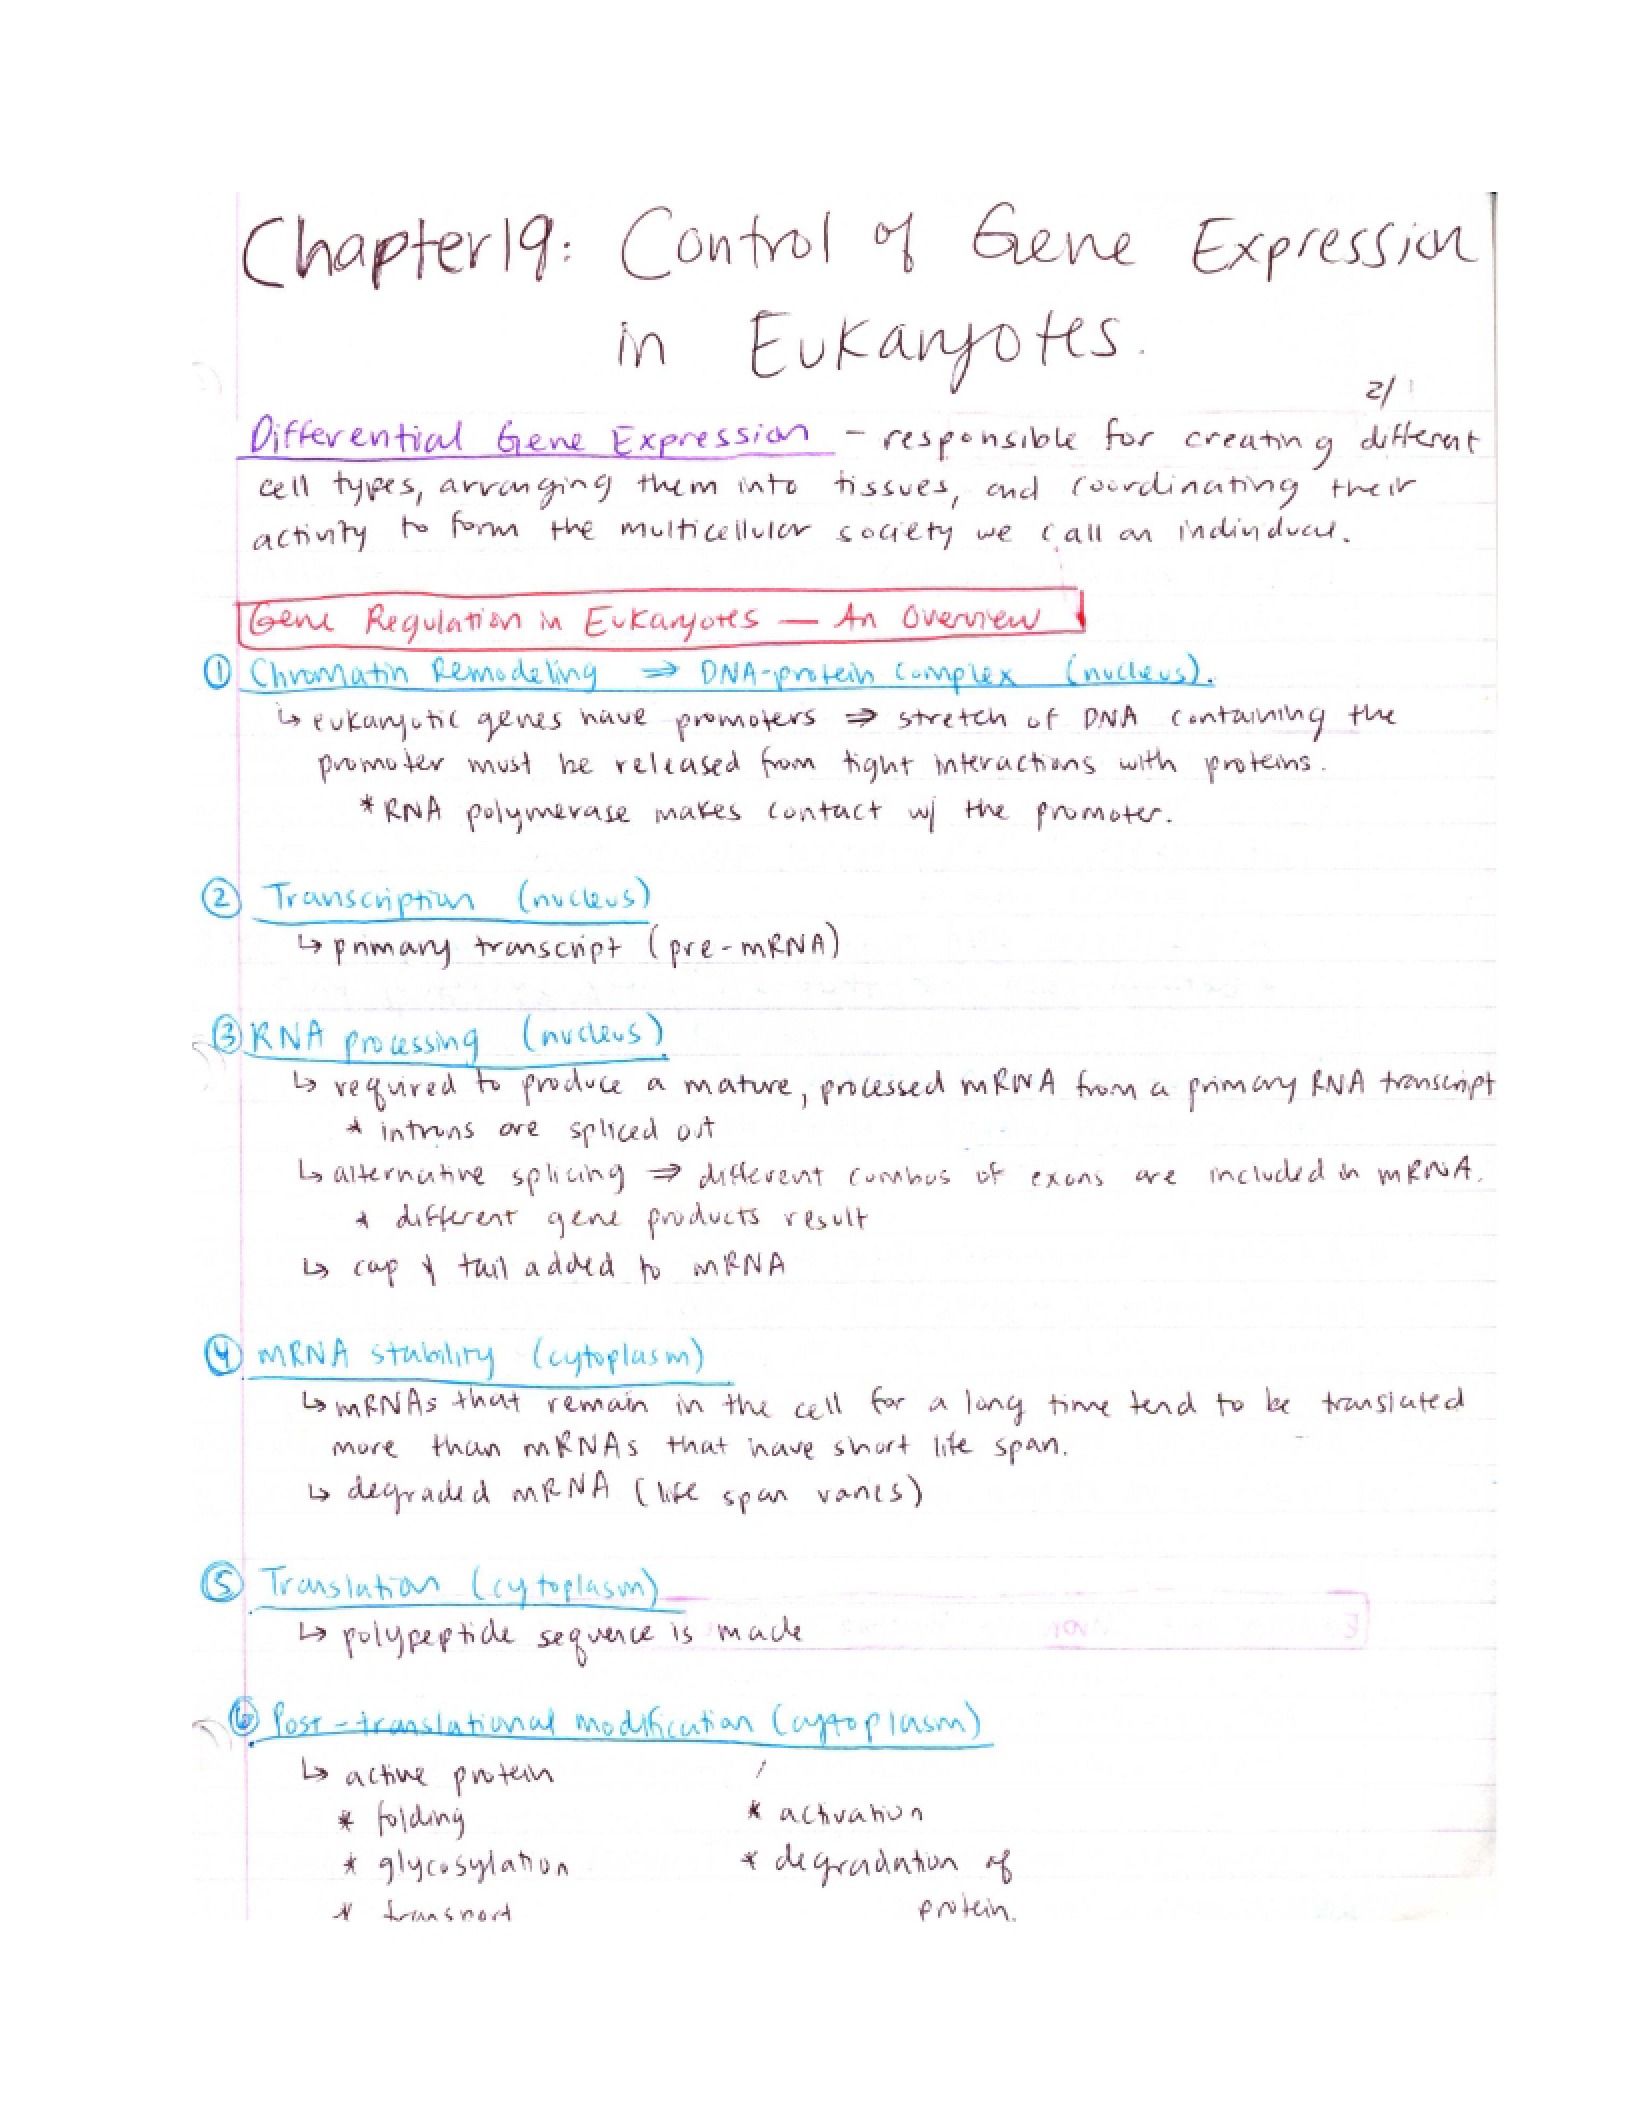 Chapter 19: Control of Gene Expression
in Eukaryotes.
2/1
Differential Gene Expression - responsible for creating different
cell types, arranging them into tissues, and coordinating their
activity to form the multicellular society we call an individual.
Gene Regulation in Eukaryotes — An Overview
① Chromatin Remodeling ⇒ DNA-protein complex (nucleus).
↳ eukaryotic genes have promoters ⇒ stretch of DNA containing the
promoter must be released from tight interactions with proteins.
* RNA polymerase makes contact w/ the promoter.
② Transcription (nucleus)
↳ primary transcript (pre-mRNA)
③ RNA processing (nucleus)
↳ required to produce a mature, processed mRNA from a primary RNA transcript
* introns are spliced out
↳ alternative splicing ⇒ different combos of exons are included in mRNA.
* different gene products result
↳ cap & tail added to mRNA
④ mRNA stability (cytoplasm)
↳ mRNAs that remain in the cell for a long time tend to be translated
more than mRNAs that have short life span.
↳ degraded mRNA (life span varies)
⑤ Translation (cytoplasm)
↳ polypeptide sequence is made
⑥ Post-translational modification (cytoplasm)
↳ active protein
* folding * activation
* glycosylation * degradation of
* transport protein.